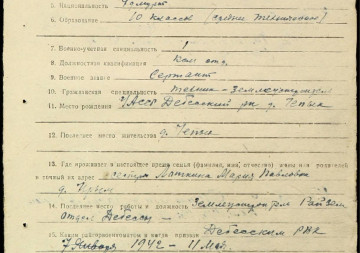 5. Национальность Удмурт
6. Образование 10 классов (средне техническое)
7. Военно-учетная специальность 1
8. Должностная квалификация Ком. отд.
9. Военное звание Сержант
10. Гражданская специальность техник-землеустроитель
11. Место рождения УАССР Дебесский рн д. Тепык
12. Последнее место жительства д. Тепык
13. Где проживает в настоящее время семья (фамилия, имя, отчество) жены или родителей
и точный их адрес Мария Павловна
д.
14. Последнее место работы и должность Землеустроитель Райзем
отдел Дебесы
15. Каким райвоенкоматом и когда призван Дебесским РВК
7 января 1942 -